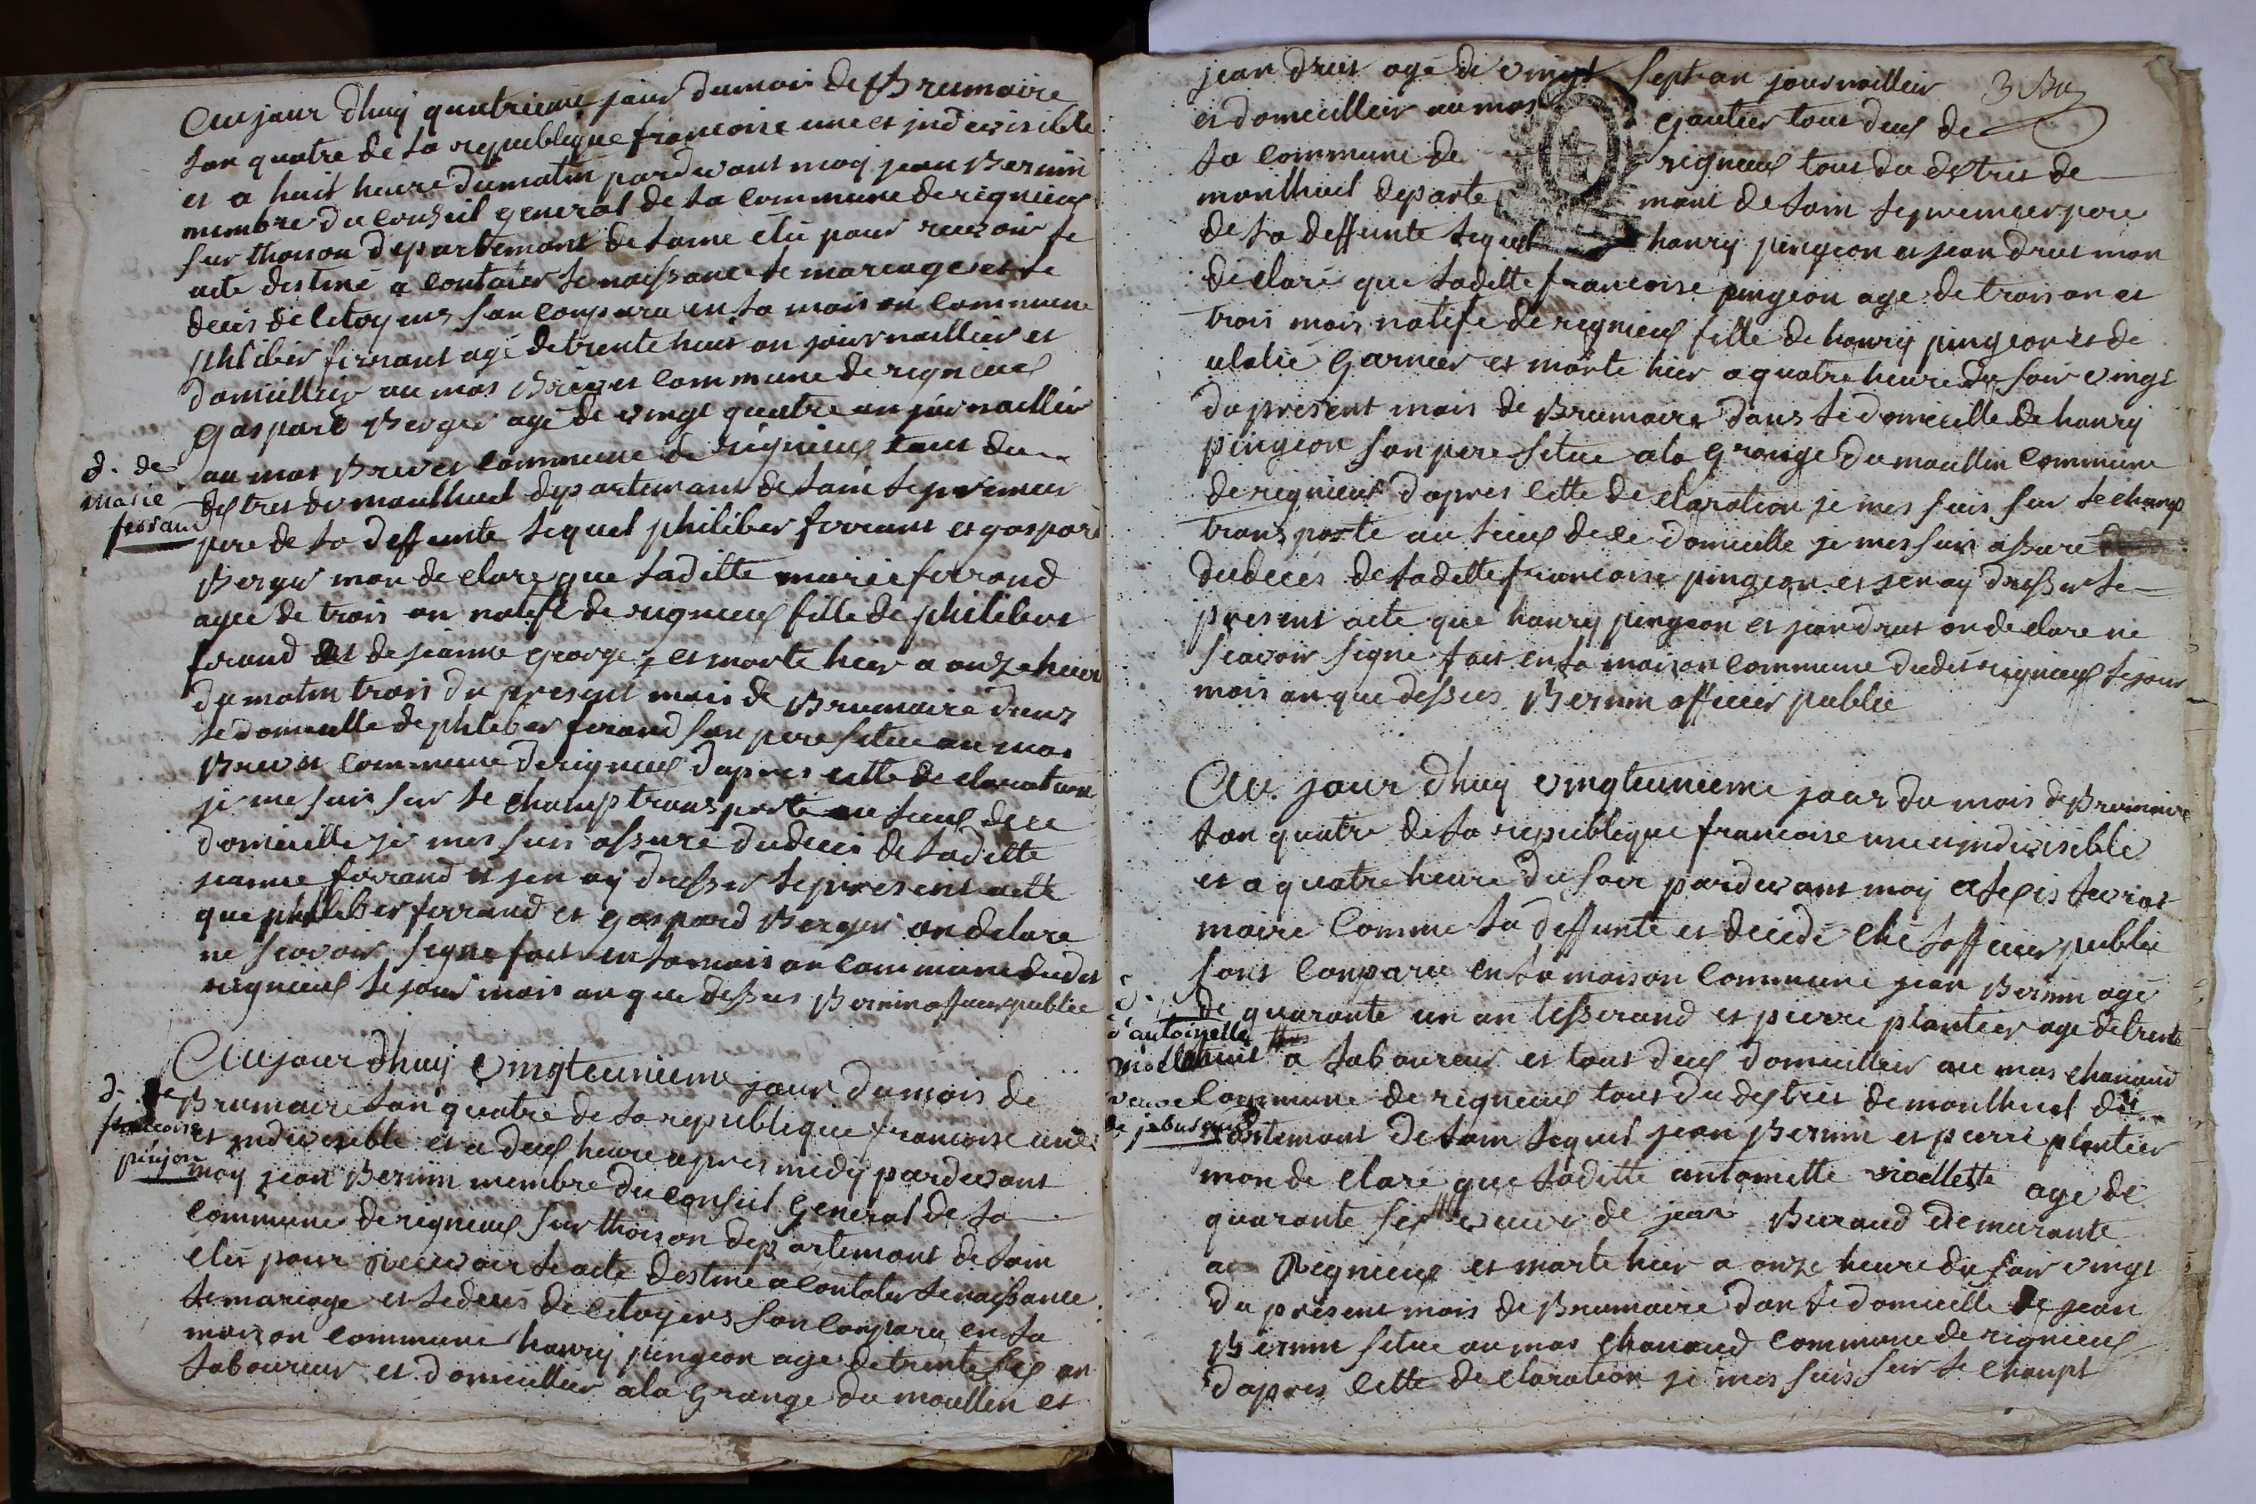 Aujour dhuy quatrieme jour du mois de Brumaire
lan quatre de la republique francoise une et indivisible
et a huit heure du matin pardevant moy jean Bernin
membre du conseil general de la commune de rignieux
sur thoison departement de laine elu pour recevoir le
acte destiné a contater le naissance le mariage et le
deces de citoyens son conparu en la maison commune
philiber ferrant agé de trente huit an journaillier et
domicillier au mas Brevet commune de rignieux
Gaspard Berger agé de vingt quatre an journaillier
au mas Brevet commune de rignieux tous du
d. de
marie
ferrand
destret de montluel departemant de lain le premier
pere de la deffunte lequel philiber ferrant et gaspard
Berger mon declare que laditte marie ferrand
agée de trois an natife de rignieux fille de philibert
ferand et de jeanne george, et morte hier a onze heure
du matin trois du present mois de Brumaire dans
le domicille de phileber ferand son pere situe au mas
Brevet commune de rignieux dapres cette declaration
je me suis sur le champ transporte au lieux de ce
domicille je mes suis assuré du deces de laditte
jeanne ferrand et jen ay dresser le present acte
que phileber ferrand et gaspard Berger on delare
ne scavoir signe fait en la maison commune dudit
rignieux le jour mois an que dessus Bernin officier publie
Aujour dhuy vingteunieme jour du mois de
d. de
francoise
pinjon
Brumaire lan quatre de la republique francoise une
et indivisible et a deux heure apres midy pardevant
moy jean Bernin membre du conseil general de la
commune de rignieux sur thoison departemant de lain
elu pour recevoir le acte destine a contater le naissance
le mariage et le deces de citoyens son conparu en la
maison commune hanry pingeon age de trente six an
laboureur et domicillier a la grange du moullin et
jean drut agé de vingt sept an journaillier
3 Bu
et domicillier au mas gautier tous deux de
la commune de rignieux tous du destret de
montluel departe mant de lain le premier pere
de la deffunte lequel hanry pingeon et jean drut mon
declaré que laditte francoise pingeon age de trois an et
trois mois natife de rignieux fille de hanry pingeon et de
ulalie garnier et morte hier a quatre heure du soir vingt
du present mois de Brumaire dans le domicille de hanry
pingeon son pere situe a la grange du moullin commune
de rignieux dapres cette declaration je mes suis sur le champ
transporte au lieux de ce domicille je mes suis assure
du deces de laditte francoise pingeon et jen ay dresser le
present acte que hanry pingeon et jean drut on declare ne
scavoir signe fait en la maison commune dudit rignieux le jour
mois an que dessus Bernin officier publie
Au jour dhuy vingteunieme jour du mois de Brumaire
lan quatre de la republique francoise une et indivisible
et a quatre heure du soir pardevant moy alexis
maire comme la deffunte et decede ché lofficier publie
sont conparu en la maison commune jean Bernin agé
de quarante un an tisserand et pierre plantier age de trente
d.
d'antoinette
violette
veuve
de j. buraud
huit a laboureur et tout deux domicillier au mas chanaud
commune de rignieux tous du destrict de montluel de
partemant de lain lequel jean Bernin et pierre plantier
mon declaré que laditte antoinette violleste age de
quarante six veuve de jean Buraud demurante
a Rignieux et morte hier a onze heure du soir vingt
du present mois de Brumaire dan le domicille de jean
Bernin situe au mas chanaud commune de rignieux
dapres cette declaration je mes suis sur le champt